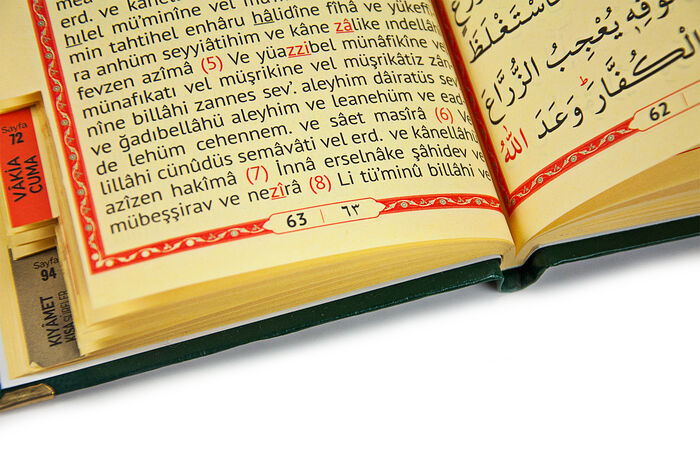 erd. ve kânellâhü
hılel mü'minîne vel mü'minâti
min tahtihel enhâru hâlidîne fîhâ ve yükeffi
ra anhüm seyyiâtihim ve kâne zâlike ındellâhi
fevzen azîmâ (5) Ve yüazzibel münâfikîne vel
münafıkatı vel müşrikine vel müşrikâtiz zân
nîne billâhi zannes sev'. aleyhim dâiratüs
ve ğadıbellâhü aleyhim ve leanehüm ve ead
de lehüm cehennem. ve sâet masîrâ (6) Ve
lillâhi cünûdüs semâvâti vel erd. ve kânellâhü
azîzen hakîmâ (7) İnnâ erselnâke şâhidev ve
mübeşşirav ve nezîrâ (8) Li tü'minû billâhi ve
63 | ٦٣
فَاسْتَغْلَظَ
سُوقِهِ يُعْجِبُ الزُّرَّاعَ
الْكُفَّارَ وَعَدَ اللّٰهُ
62
Sayfa
72
VÂKIA
CUMA
Sayfa
94
KIYÂMET
KISA SÛRELER